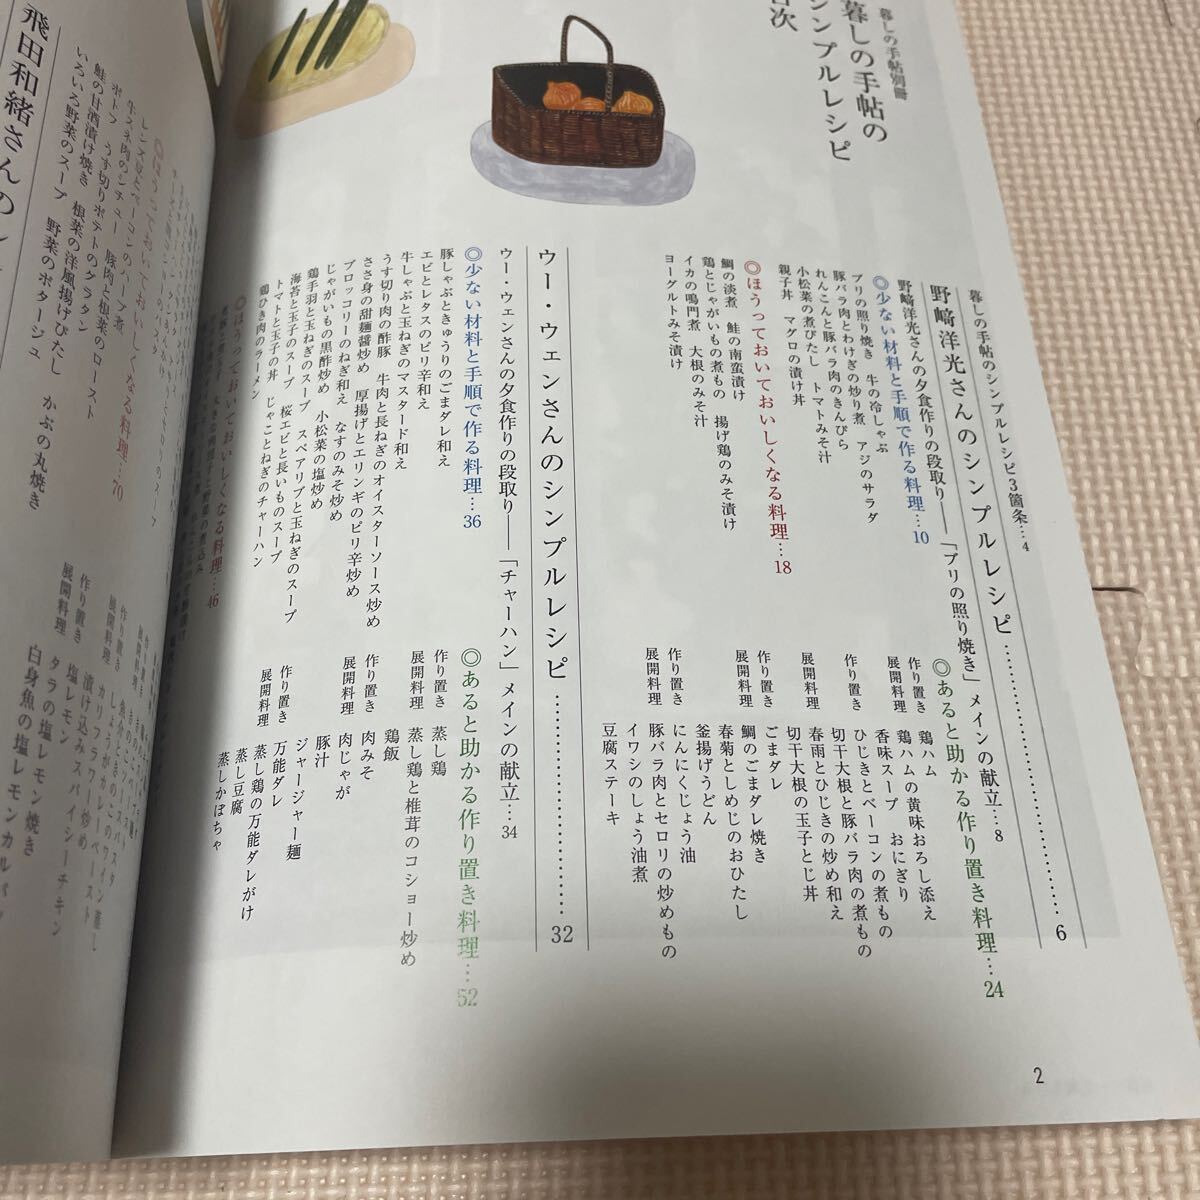 暮しの手帖別冊
暮しの手帖の
シンプルレシピ
目次
暮しの手帖のシンプルレシピ3箇条…4
野﨑洋光さんのシンプルレシピ…………………6
野﨑洋光さんの夕食作りの段取り——「ブリの照り焼き」メインの献立…8
◎少ない材料と手順で作る料理…10
ブリの照り焼き 牛の冷しゃぶ
豚バラ肉とわけぎの炒り煮 アジのサラダ
れんこんと豚バラ肉のきんぴら
小松菜の煮びたし トマトみそ汁
親子丼 マグロの漬け丼
◎ほうっておいておいしくなる料理…18
鯛の淡煮 鮭の南蛮漬け
鶏とじゃがいもの煮もの 揚げ鶏のみそ漬け
イカの鳴門煮 大根のみそ汁
ヨーグルトみそ漬け
◎あると助かる作り置き料理…24
作り置き 鶏ハム
展開料理 鶏ハムの黄味おろし添え
香味スープ おにぎり
作り置き ひじきとベーコンの煮もの
切干大根と豚バラ肉の煮もの
展開料理 春雨とひじきの炒め和え
切干大根の玉子とじ丼
作り置き ごまダレ
展開料理 鯛のごまダレ焼き
春菊としめじのおひたし
釜揚げうどん
作り置き にんにくじょう油
展開料理 豚バラ肉とセロリの炒めもの
イワシのしょう油煮
豆腐ステーキ
ウー・ウェンさんのシンプルレシピ…………………32
ウー・ウェンさんの夕食作りの段取り——「チャーハン」メインの献立…34
◎少ない材料と手順で作る料理…36
豚しゃぶときゅうりのごまダレ和え
エビとレタスのピリ辛和え
牛しゃぶと玉ねぎのマスタード和え
うす切り肉の酢豚 牛肉と長ねぎのオイスターソース炒め
ささ身の甜麺醤炒め 厚揚げとエリンギのピリ辛炒め
ブロッコリーのねぎ和え なすのみそ炒め
じゃがいもの黒酢炒め 小松菜の塩炒め
鶏手羽と玉ねぎのスープ スペアリブと玉ねぎのスープ
海苔と玉子のスープ 桜エビと長いものスープ
トマトと玉子の丼 じゃことねぎのチャーハン
鶏ひき肉のラーメン
◎ほうっておいておいしくなる料理…46
◎あると助かる作り置き料理…52
作り置き 蒸し鶏
展開料理 蒸し鶏と椎茸のコショー炒め
鶏飯
作り置き 肉みそ
展開料理 肉じゃが
豚汁
ジャージャー麺
作り置き 万能ダレ
展開料理 蒸し鶏の万能ダレがけ
蒸し豆腐
蒸しかぼちゃ
2
飛田和緒さんの
◎ほうっておいておいしくなる料理…70
レンズ豆とベーコンのハーブ煮
牛スネ肉のシチュー 豚肉と根菜のロースト
ポトフ うす切りポテトのグラタン
鮭の甘酒漬け焼き 根菜の洋風揚げびたし
いろいろ野菜のスープ 野菜のポタージュ かぶの丸焼き
作り置き
展開料理
しょうがときのこのワイン蒸し
カリフラワーのカレーペースト
作り置き 漬け込みスパイシーチキン
展開料理 塩レモン
タラの塩レモン焼き
白身魚の塩レモンカルパッ